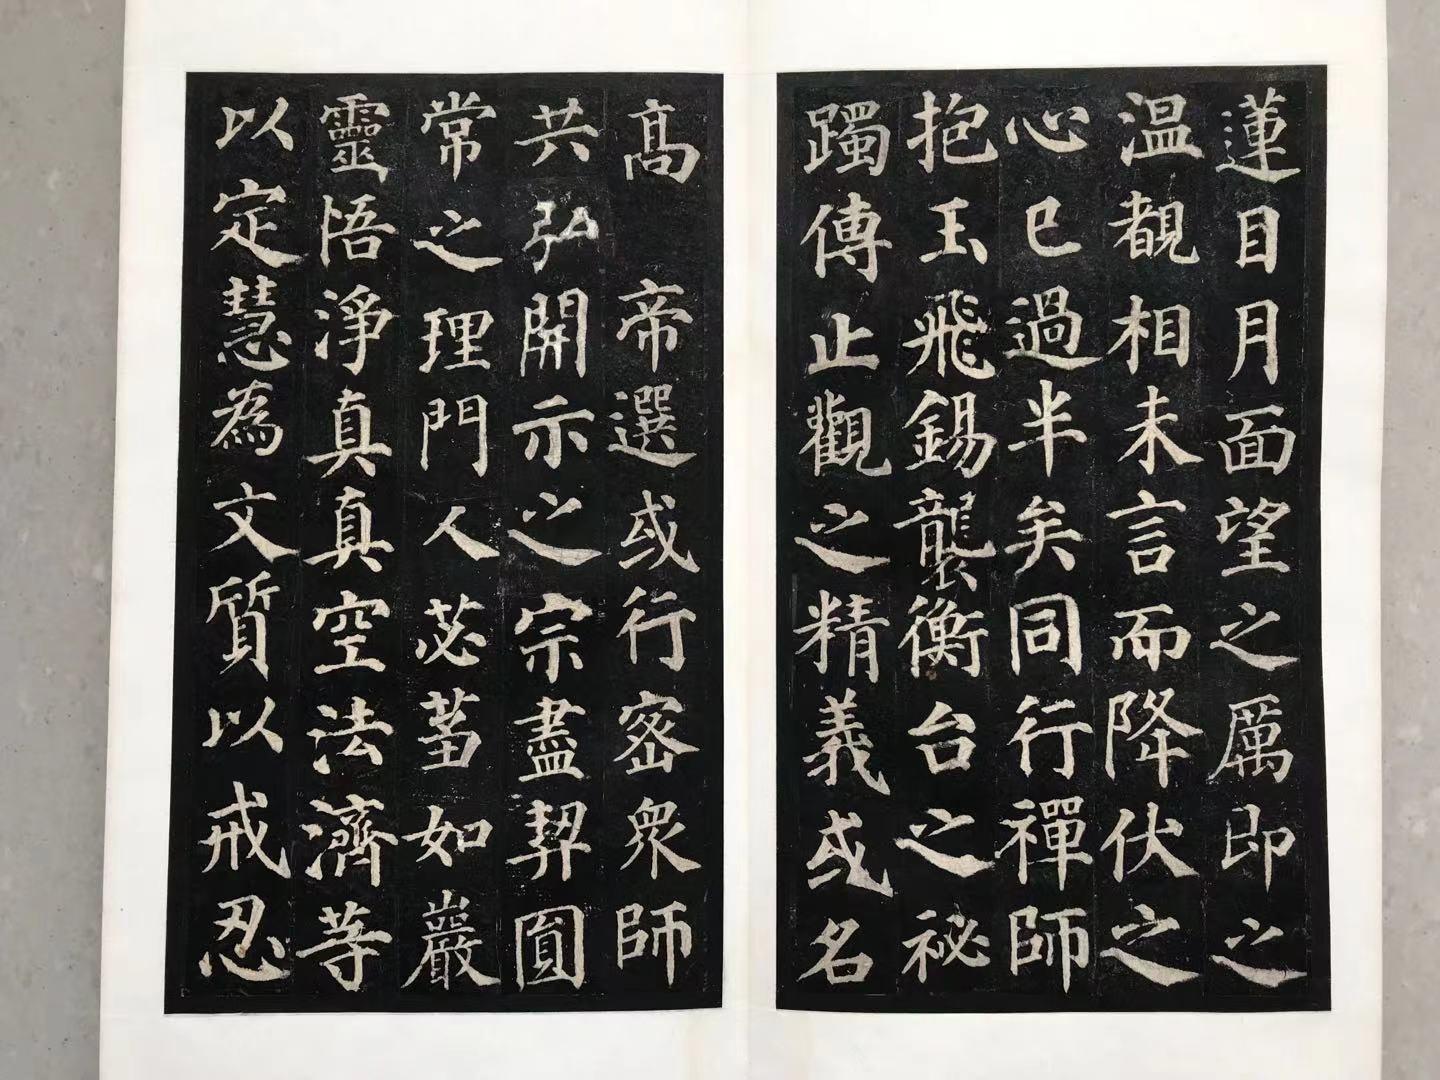 蓮目月面望之厲即之
温覩相未言而降伏之
心已過半矣同行禪師
抱玉飛錫襲衡台之祕
躅傳止觀之精義或名
高帝選或行密衆師
共弘開示之宗盡契圓
常之理門人苾蒭如巖
靈悟淨真真空法濟等
以定慧為文質以戒忍